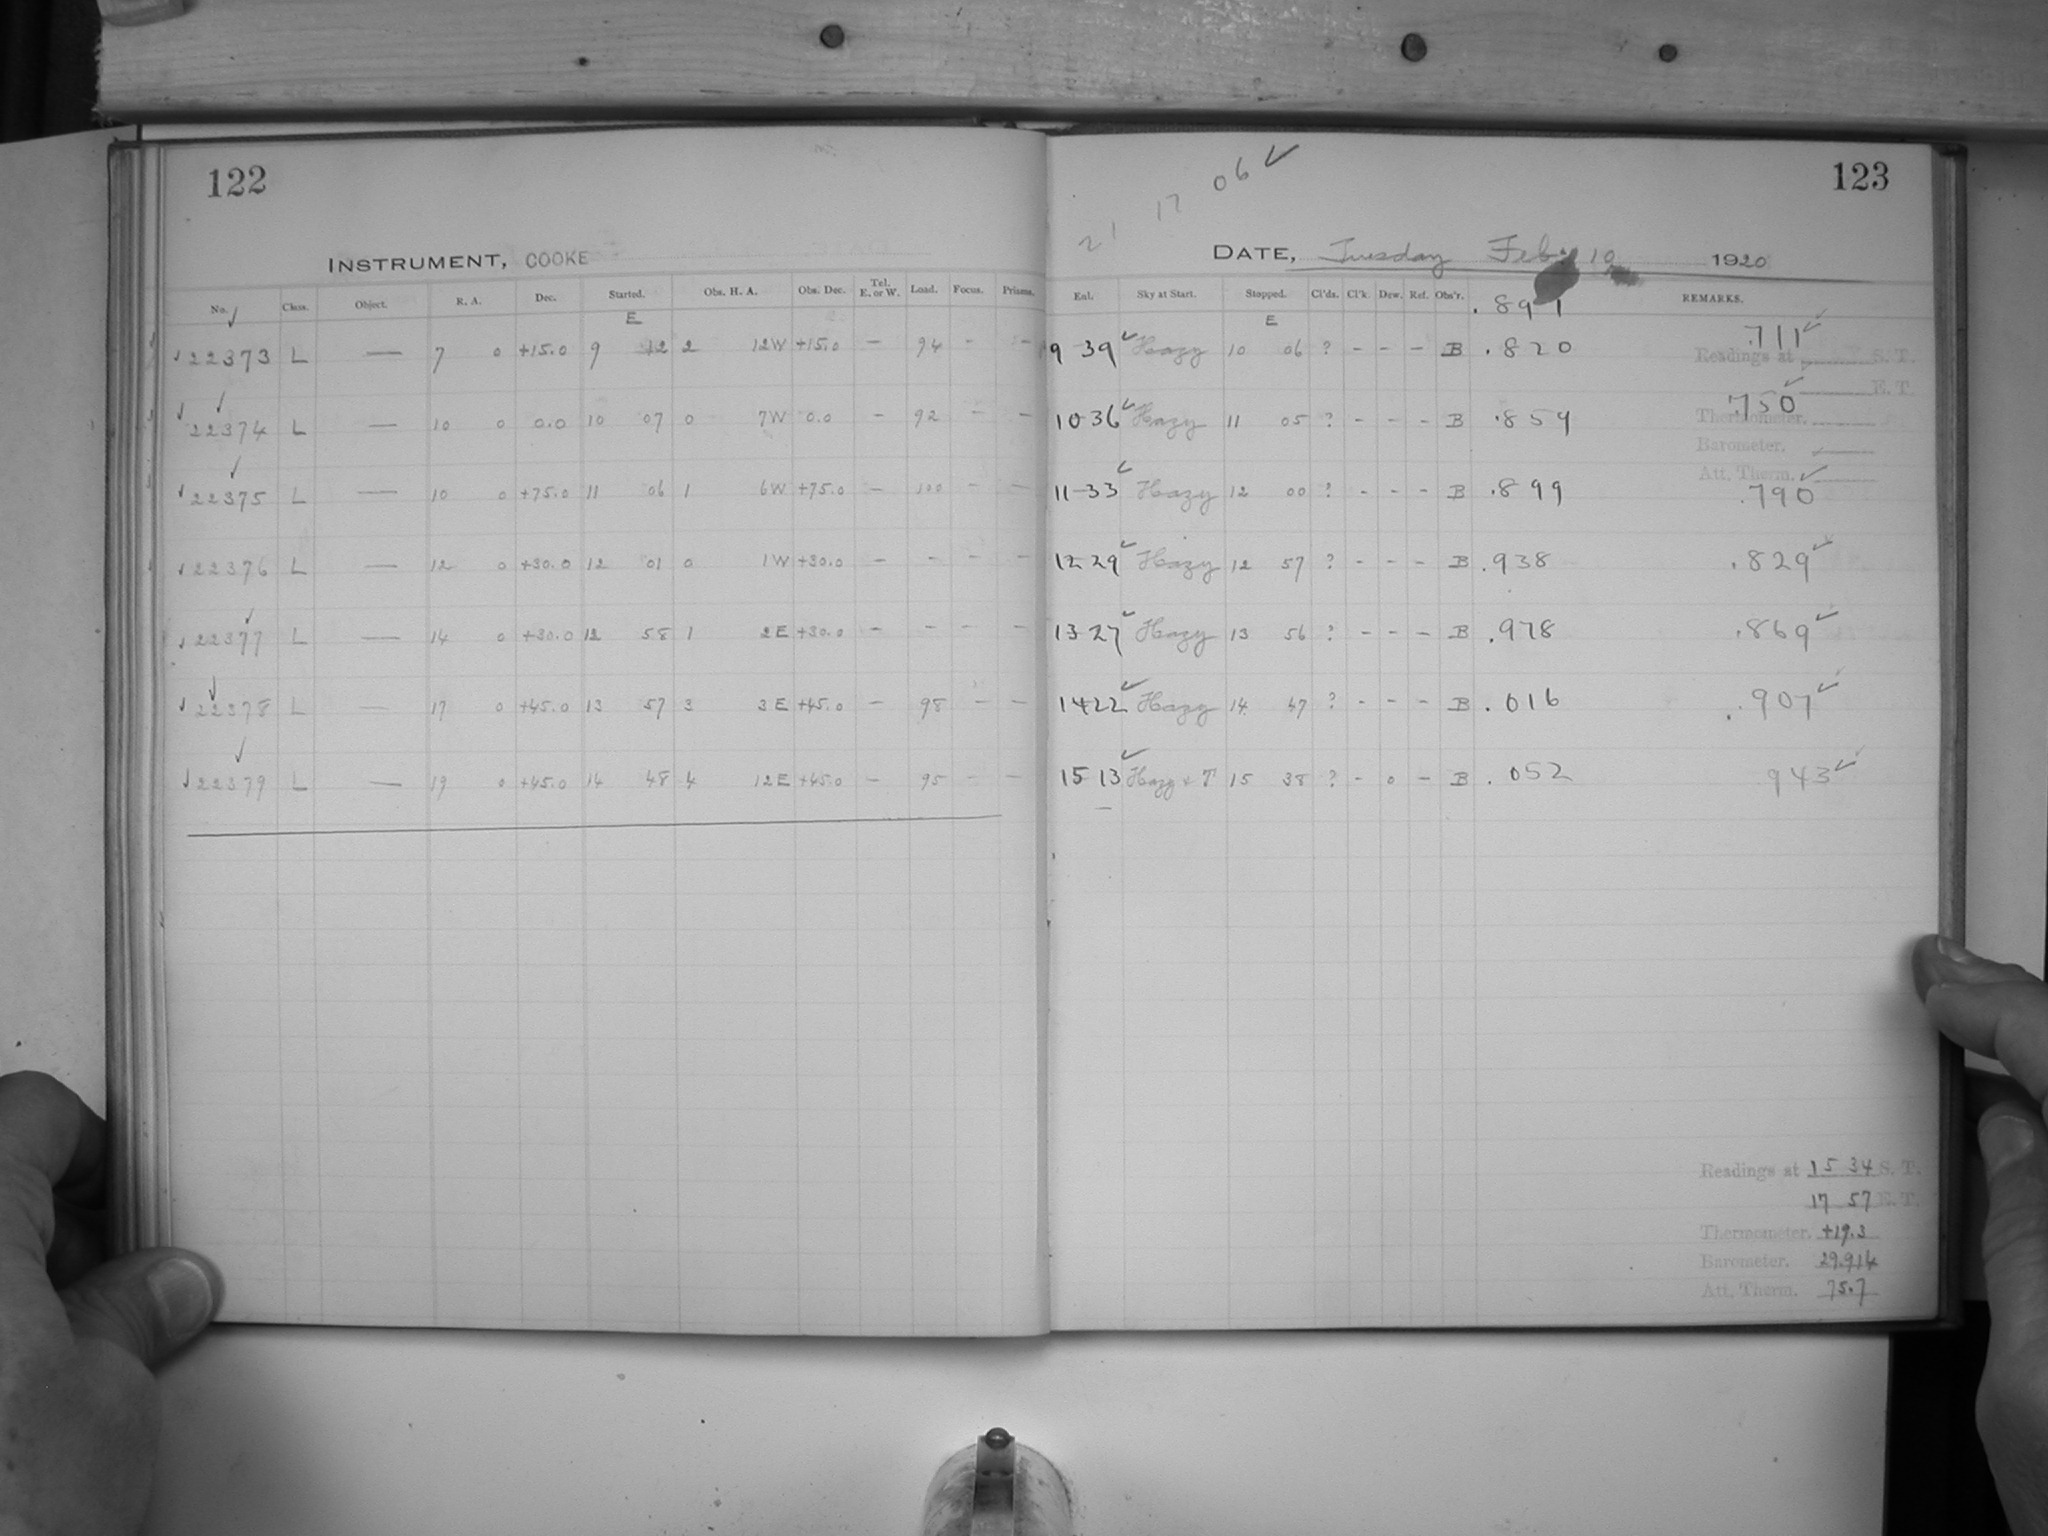 122
INSTRUMENT, COOKE
No. Class. Object. R. A. Dec. Started. Obs. H. A. Obs. Dec. Tel. E. or W. Load. Focus. Prisms.
E
22373 L — 7 0 +15.0 9 12 2 12W +15.0 – 94 – –
22374 L — 10 0 0.0 10 07 0 7W 0.0 – 92 – –
22375 L — 10 0 +75.0 11 06 1 6W +75.0 – 100 – –
22376 L — 12 0 +30.0 12 01 0 1W +30.0 – – – –
22377 L — 14 0 +30.0 12 58 1 2E +30.0 – – – –
22378 L — 17 0 +45.0 13 57 3 3E +45.0 – 98 – –
22379 L — 19 0 +45.0 14 48 4 12E +45.0 – 95 – –
123
21 17 06 ✓
DATE, Tuesday Feby 10 1920
Exl. Sky at Start. Stopped. Cl'ds. Cl'k. Dew. Ref. Obs'r. REMARKS.
E
.891
9 39 ✓ Hazy 10 06 ? – – – B .820 .711 ✓
Readings at S. T.
E. T.
10 36 ✓ Hazy 11 05 ? – – – B .859 .750 ✓
Thermometer.
Barometer.
Att. Therm.
11 33 ✓ Hazy 12 00 ? – – – B .899 .790 ✓
12 29 ✓ Hazy 12 57 ? – – – B .938 .829 ✓
13 27 ✓ Hazy 13 56 ? – – – B .978 .869 ✓
14 22 ✓ Hazy 14 47 ? – – – B .016 .907 ✓
15 13 ✓ Hazy + T 15 38 ? – 0 – B .052 943 ✓
Readings at 15 34 S. T.
17 57 E. T.
Thermometer. +19.3
Barometer. 29.914
Att. Therm. 75.7